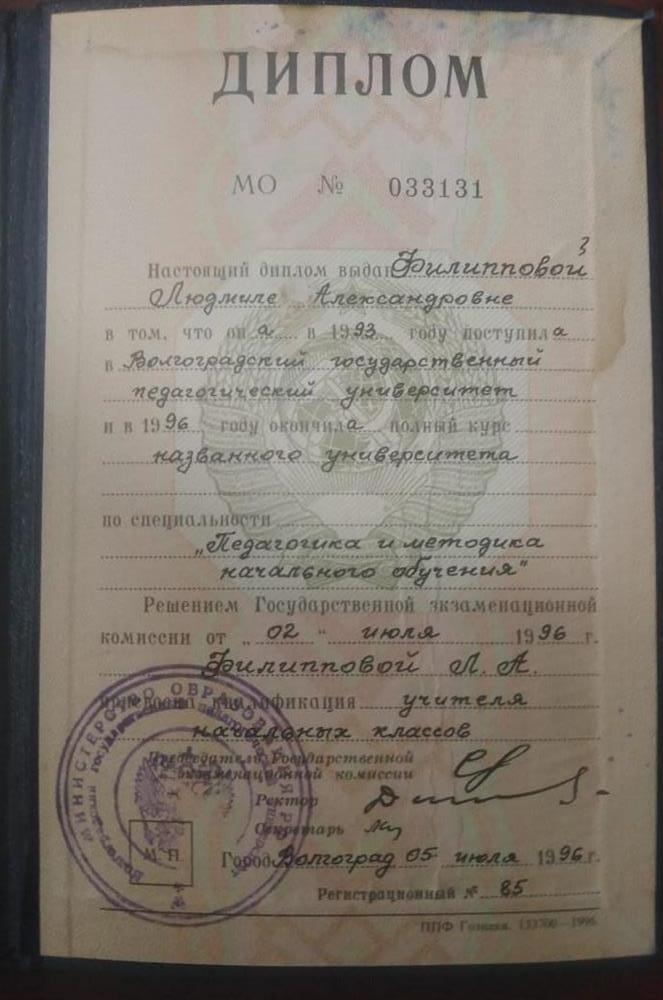 ДИПЛОМ
МО № 033131
Настоящий диплом выдан Филипповой
Людмиле Александровне
в том, что он а в 1993 году поступила
в Волгоградский государственный
педагогический университет
и в 1996 году окончила полный курс
названного университета
по специальности
„Педагогика и методика
начального обучения"
Решением Государственной экзаменационной
комиссии от „ 02 " июля 1996 г.
Филипповой Л. А.
присвоена квалификация учителя
начальных классов
Председатель Государственной
экзаменационной комиссии
Ректор
Секретарь
М. П.
Город Волгоград 05 июля 1996 г.
Регистрационный № 85
ППФ Гознака. 153700 1996
МИНИСТЕРСТВО ОБРАЗОВАНИЯ